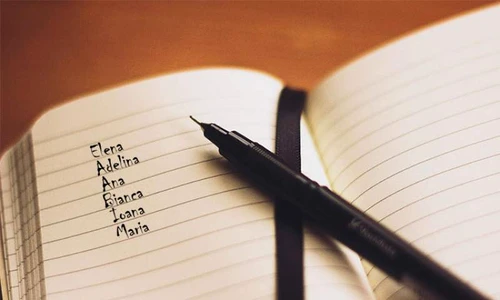 Elena
Adelina
Ana
Bianca
Ioana
Maria